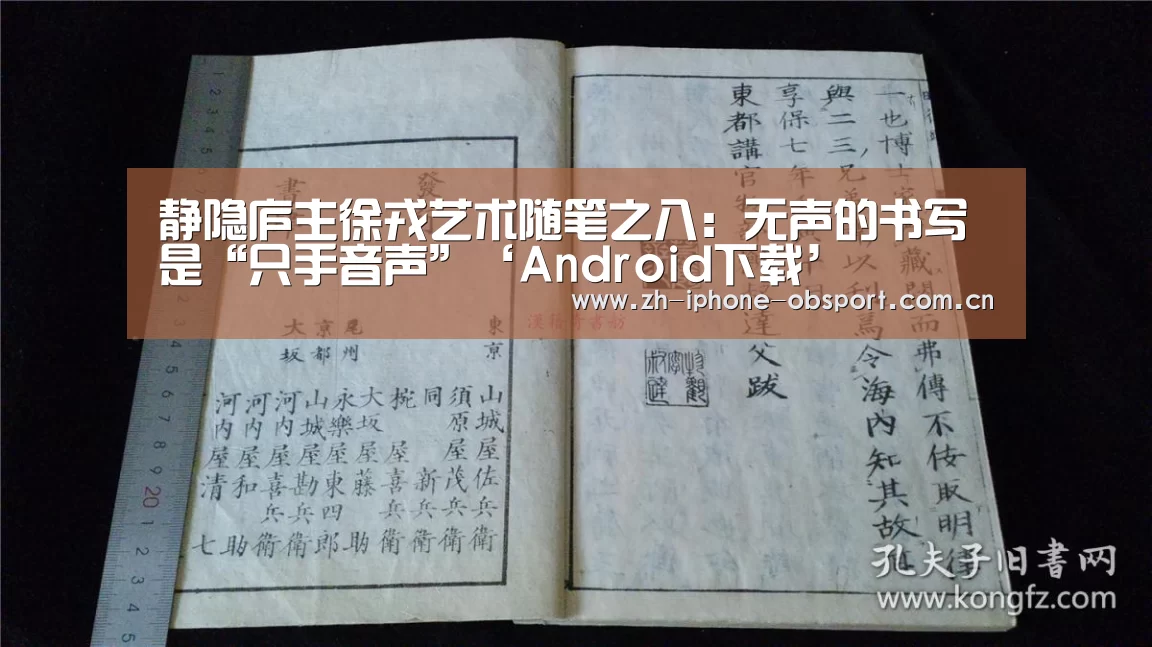 静隐庐主徐戎艺术随笔之八：无声的书写
是“只手音声”‘Android下载’
www.zh-iphone-obsport.com.cn
一也博士
藏關而弗傳不伎取明律
與二三兄弟
以利焉令海內知其故
享保七年
東都講官物
達父跋
發
書
東京
山城屋佐兵衛
須原屋茂兵衛
同 新兵衛
椀屋喜兵衛
大坂屋藤助
尾州
永樂屋東四郎
京都
山城屋勘兵衛
大坂
河內屋喜兵衛
河內屋和助
河內屋清七
孔夫子旧书网
www.kongfz.com